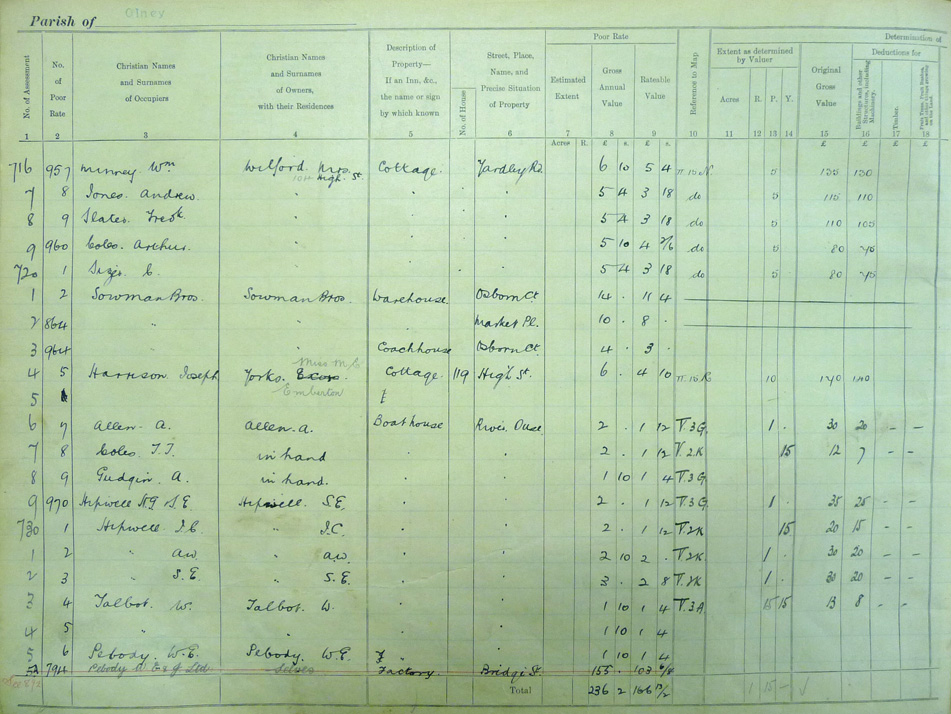 Parish of Olney
Poor Rate
Determination of
No. of Assessment
No. of Poor Rate
Christian Names and Surnames of Occupiers
Christian Names and Surnames of Owners, with their Residences
Description of Property— If an Inn, &c., the name or sign by which known
No. of House
Street, Place, Name, and Precise Situation of Property
Estimated Extent
Gross Annual Value
Rateable Value
Reference to Map
Extent as determined by Valuer
Acres R. P. Y.
Original Gross Value
Deductions for
Buildings and other Structures, including Machinery.
Timber.
1 2 3 4 5 6 7 8 9 10 11 12 13 14 15 16 17 18
Acres R. £ s. £ s. £ £ £ £
716 957 Minney Wm Wilford Bros. High St. Cottage. Yardley Rd. 6 10 5 4 5 135 130
7 8 Jones Andrew " 5 4 3 18 do 5 115 110
8 9 Slater Fredk " 5 4 3 18 do 5 110 105
9 960 Coles. Arthur. " 5 10 4 2/6 do 5 80 75
720 1 C. " 5 4 3 18 do 5 80 75
1 2 Sowman Bros. Sowman Bros. Warehouse Osborn Ct. 14 . 11 4
2 864 " Market Pl. 10 . 8 .
3 964 " Coachhouse Osborn Ct. 4 . 3 .
4 5 Harrison Joseph Yorks. Miss M. E Emberton Cottage 119 High St. 6 . 4 10 10 140 140
5
6 7 Allen. A. Allen. A. Boathouse River Ouse 2 . 1 12 V.3G. 1 . 30 20 - -
7 8 Coles T.J. in hand 2 . 1 12 V.2.K 15 12 7 - -
8 9 Gudgin. A. in hand. 1 10 1 4 V.3G
9 970 Hipwell H.G S.E. Hipwell S.E. 2 . 1 12 V.3G. 1 . 35 25 - -
730 1 Hipwell J.C. " J.C. 2 . 1 12 V.2K 15 20 15 - -
1 2 " A.W. " A.W. 2 10 2 . V.2K. 1 . 30 20 - -
2 3 " S.E. " S.E. 3 . 2 8 V.2K 1 . 30 20 - -
3 4 Talbot. W. Talbot. W. 1 10 1 4 V.3A 15 15 13 8 - -
4 5 " 1 10 1 4
5 6 Pebody. W.E. Pebody. W.E 1 10 1 4
794 Pebody W E & J Ltd. Selves Factory. Bridge St. 155 . 103 6/8
Total 236 2 166 13/2